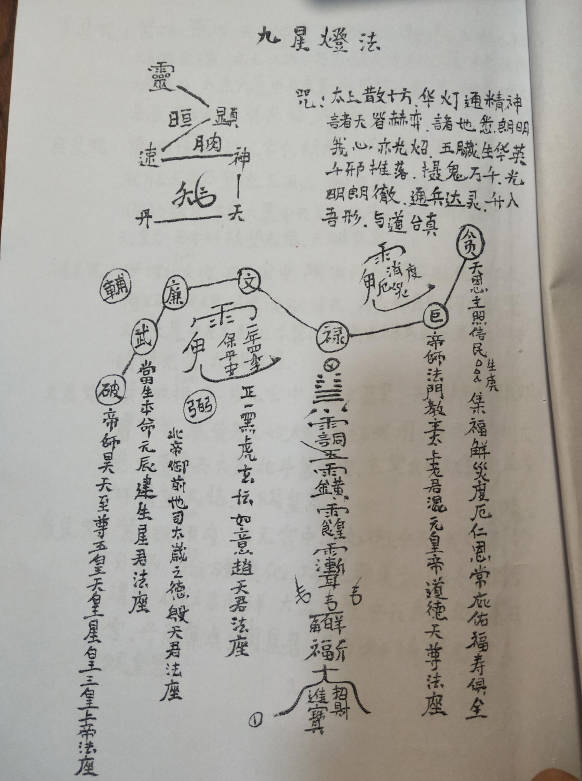 九星燈法
靈
晅 顯
朒
速 神
丹 天
咒：太上散十方．华灯通精神
諸天籍赫奕．諸地悉朗明
我心亦光炤．五臟生华英
千邪摧落．攝鬼万千．光
明朗徹．通兵达灵．升入
吾形．与道合真
貪
巨
祿
文
廉
武
破
輔
弼
天恩主照信民○○○生庚 集福解災度厄仁恩常庇佑福寿俱全
消災度厄
帝師法門教主太上老君混元皇帝道德天尊法座
福
招財
進寶
①
一年四季
保平安
正一黑虎玄坛如意趙天君法座
北帝御前地司太歲之德殷天君法座
當生本命元辰建生星君法座
帝師昊天至尊五皇天皇星皇三皇上帝法座